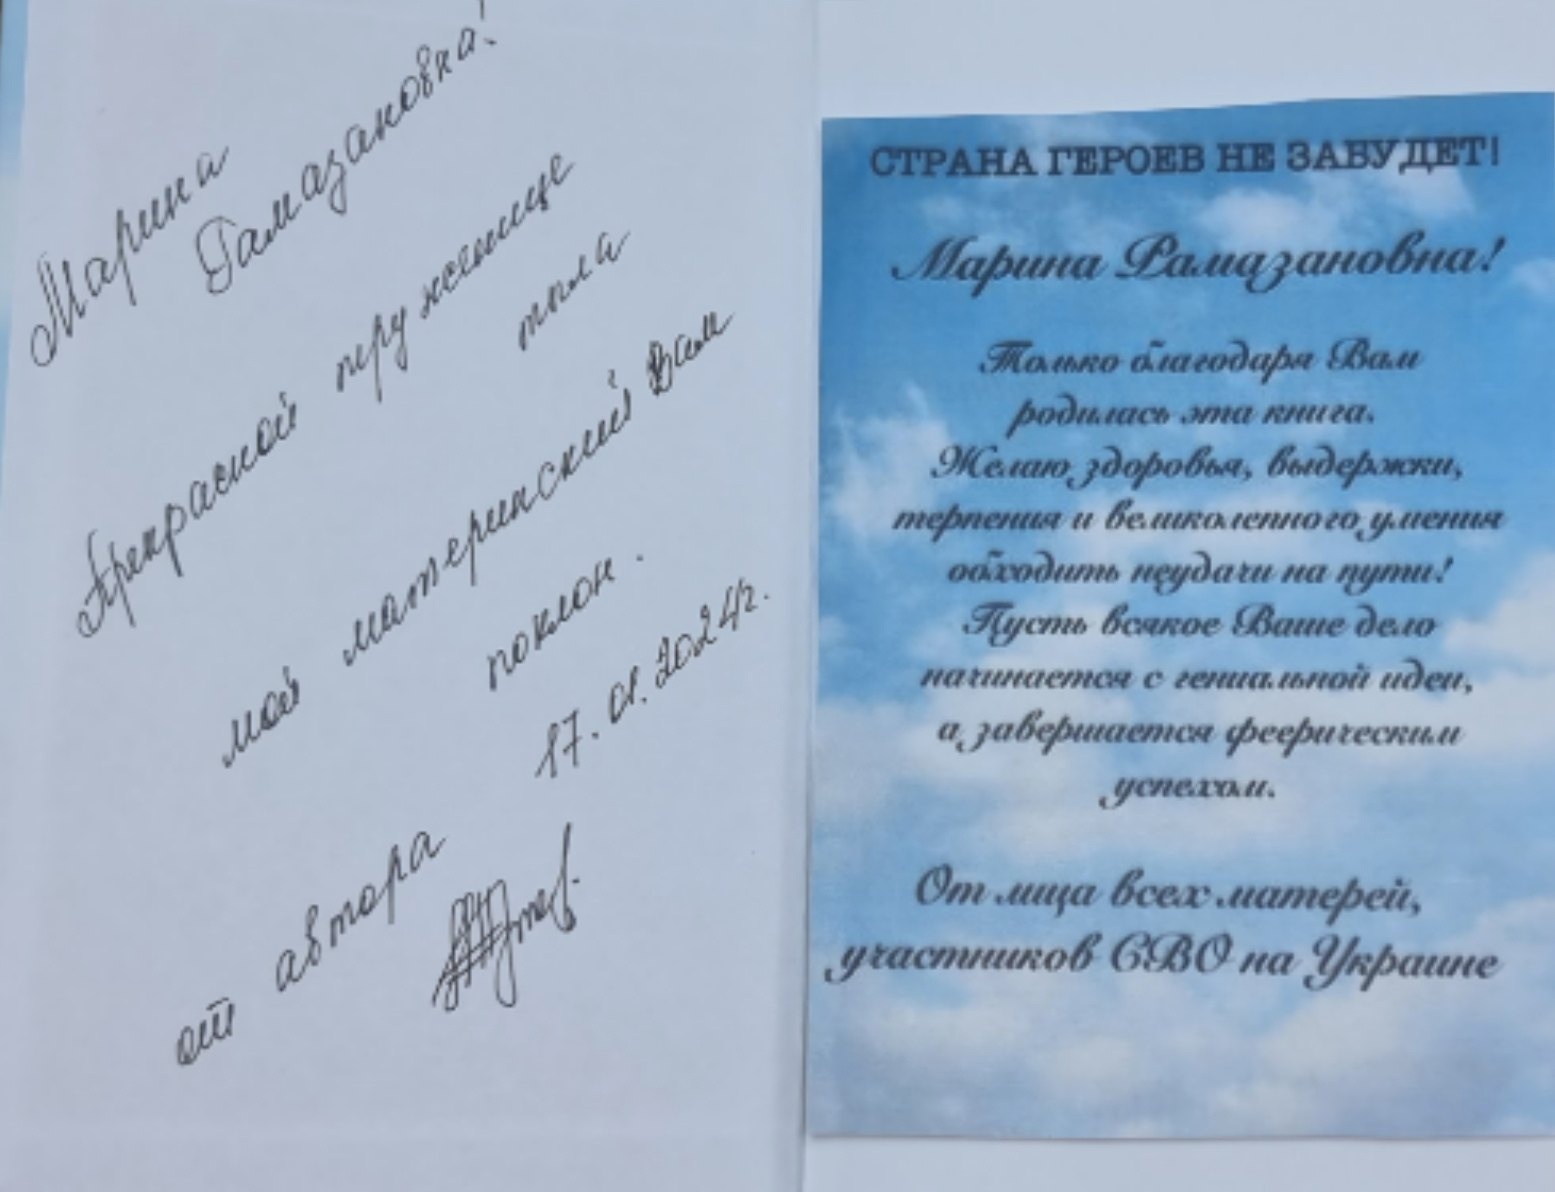 Марина
Рамазановна!
Прекрасной труженице
тыла
мой материнский Вам
поклон.
17.01.2024г.
от автора
СТРАНА ГЕРОЕВ НЕ ЗАБУДЕТ!
Марина Рамазановна!
Только благодаря Вам
родилась эта книга.
Желаю здоровья, выдержки,
терпения и великолепного умения
обходить неудачи на пути!
Пусть всякое Ваше дело
начинается с гениальной идеи,
а завершается феерическим
успехом.
От лица всех матерей,
участников СВО на Украине